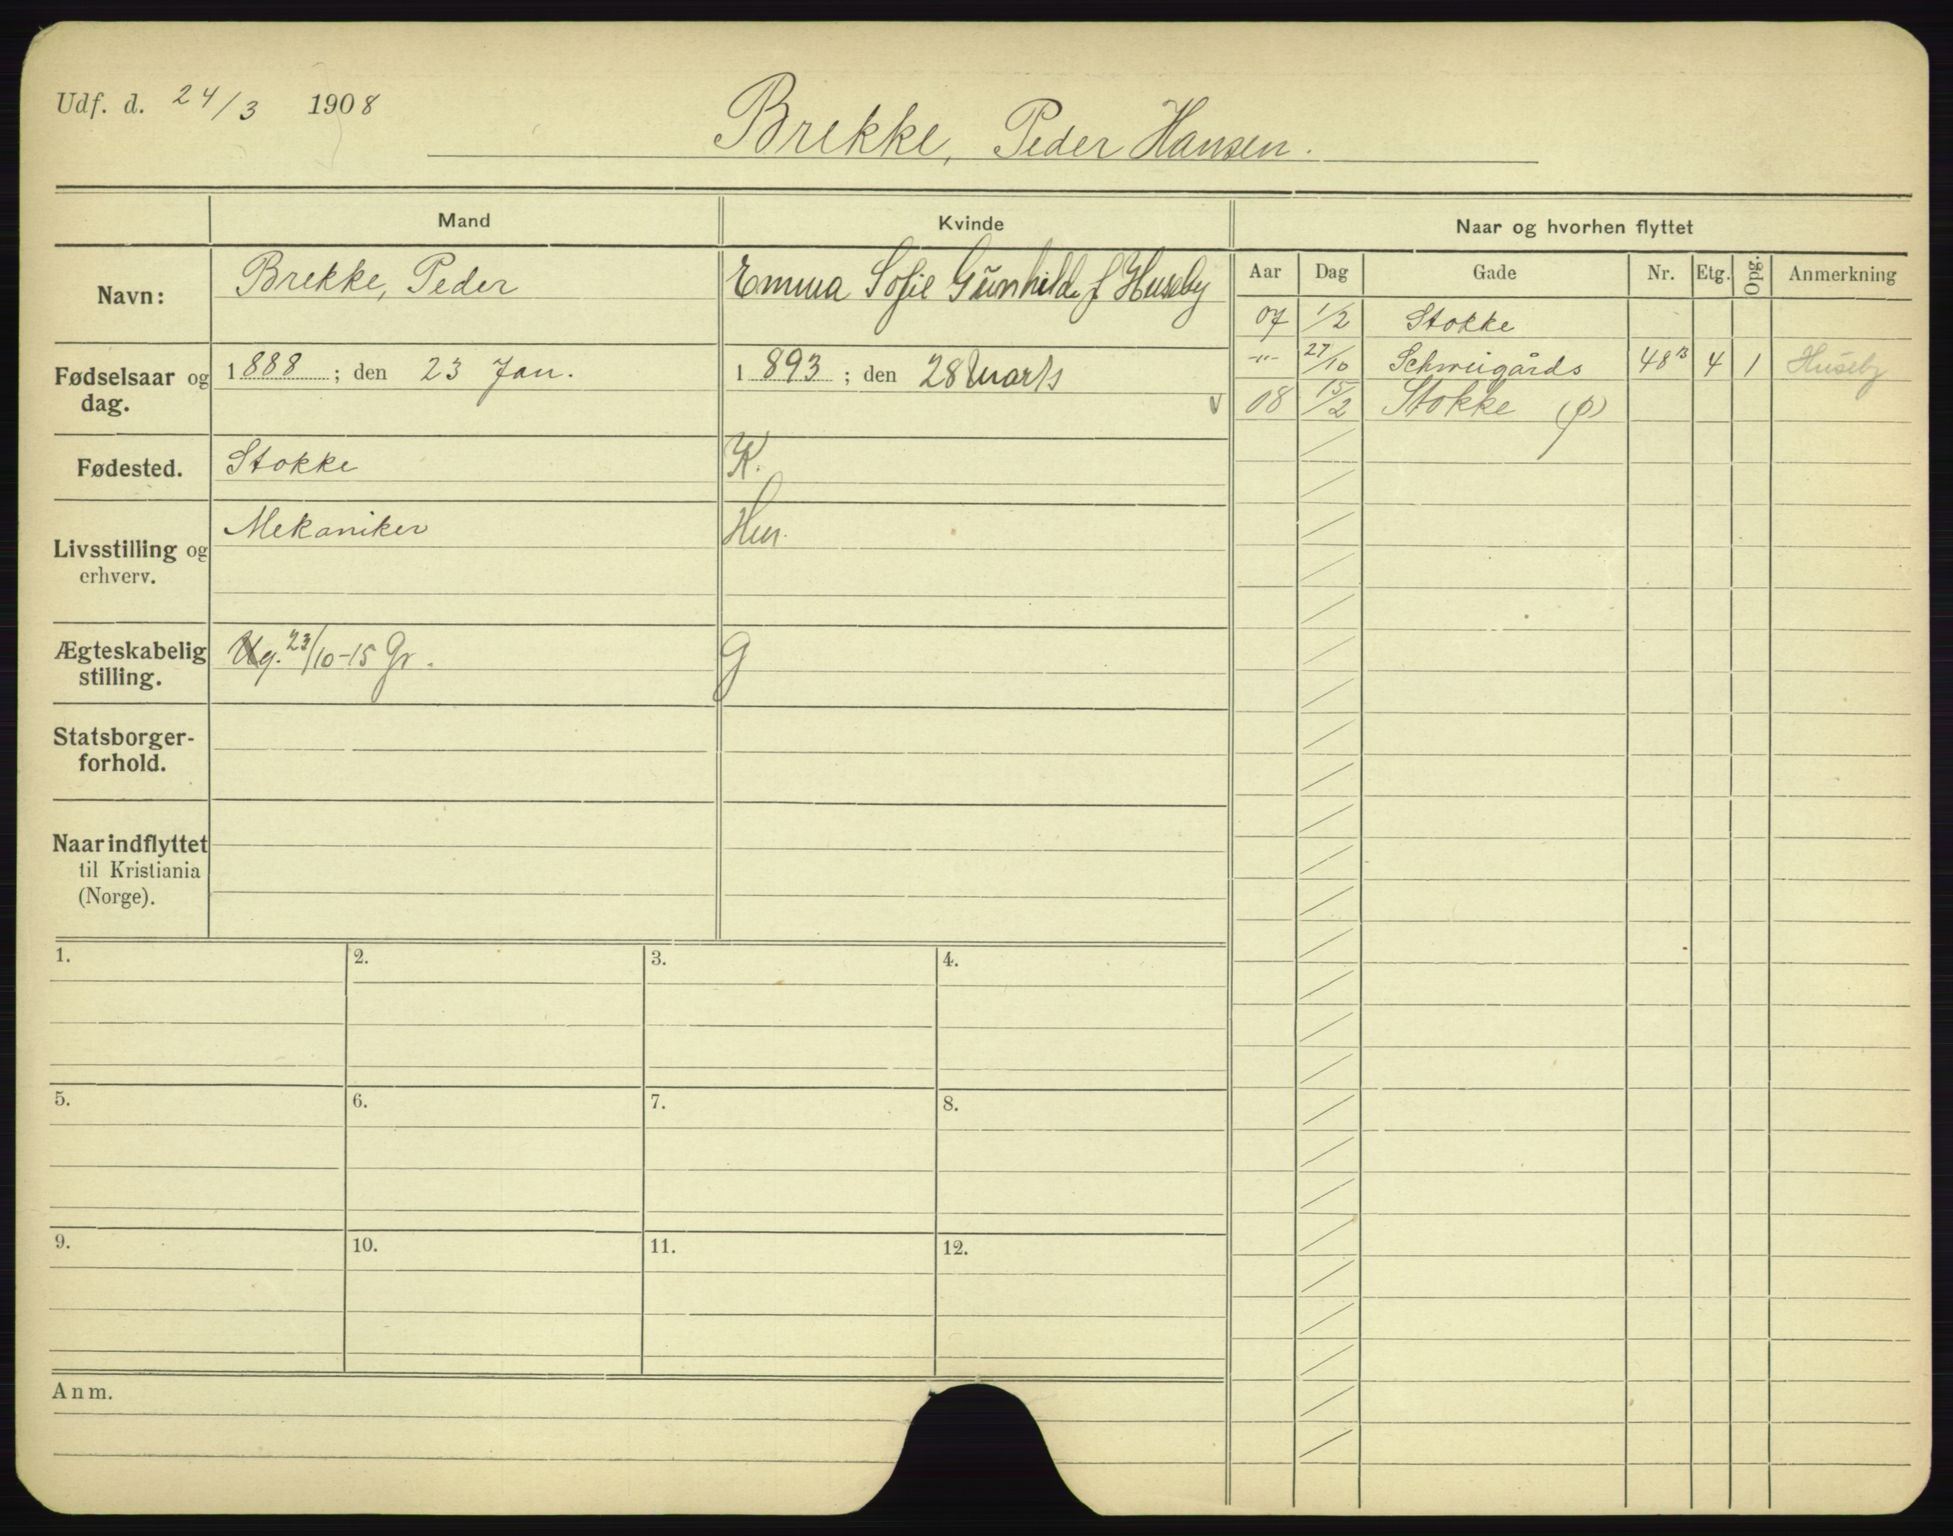 Udf. d. 24/3 1908
Brekke, Peder Hansen.
Mand
Kvinde
Naar og hvorhen flyttet
Navn:
Brekke, Peder
Emma Sofie Gunhilde f Huseby
Aar Dag Gade Nr. Etg. Opg. Anmerkning
07 1/2 Stokke
-"- 27/10 Schweigårds 48B 4 1 Huseby
08 15/2 Stokke (p)
Fødselsaar og dag.
1888; den 23 Jan.
1893; den 28 Marts
Fødested.
Stokke
K.
Livsstilling og erhverv.
Mekaniker
Hus.
Ægteskabelig stilling.
Ug. 23/10-15 Gr.
G
Statsborger-
forhold.
Naar indflyttet
til Kristiania
(Norge).
1. 2. 3. 4.
5. 6. 7. 8.
9. 10. 11. 12.
Anm.